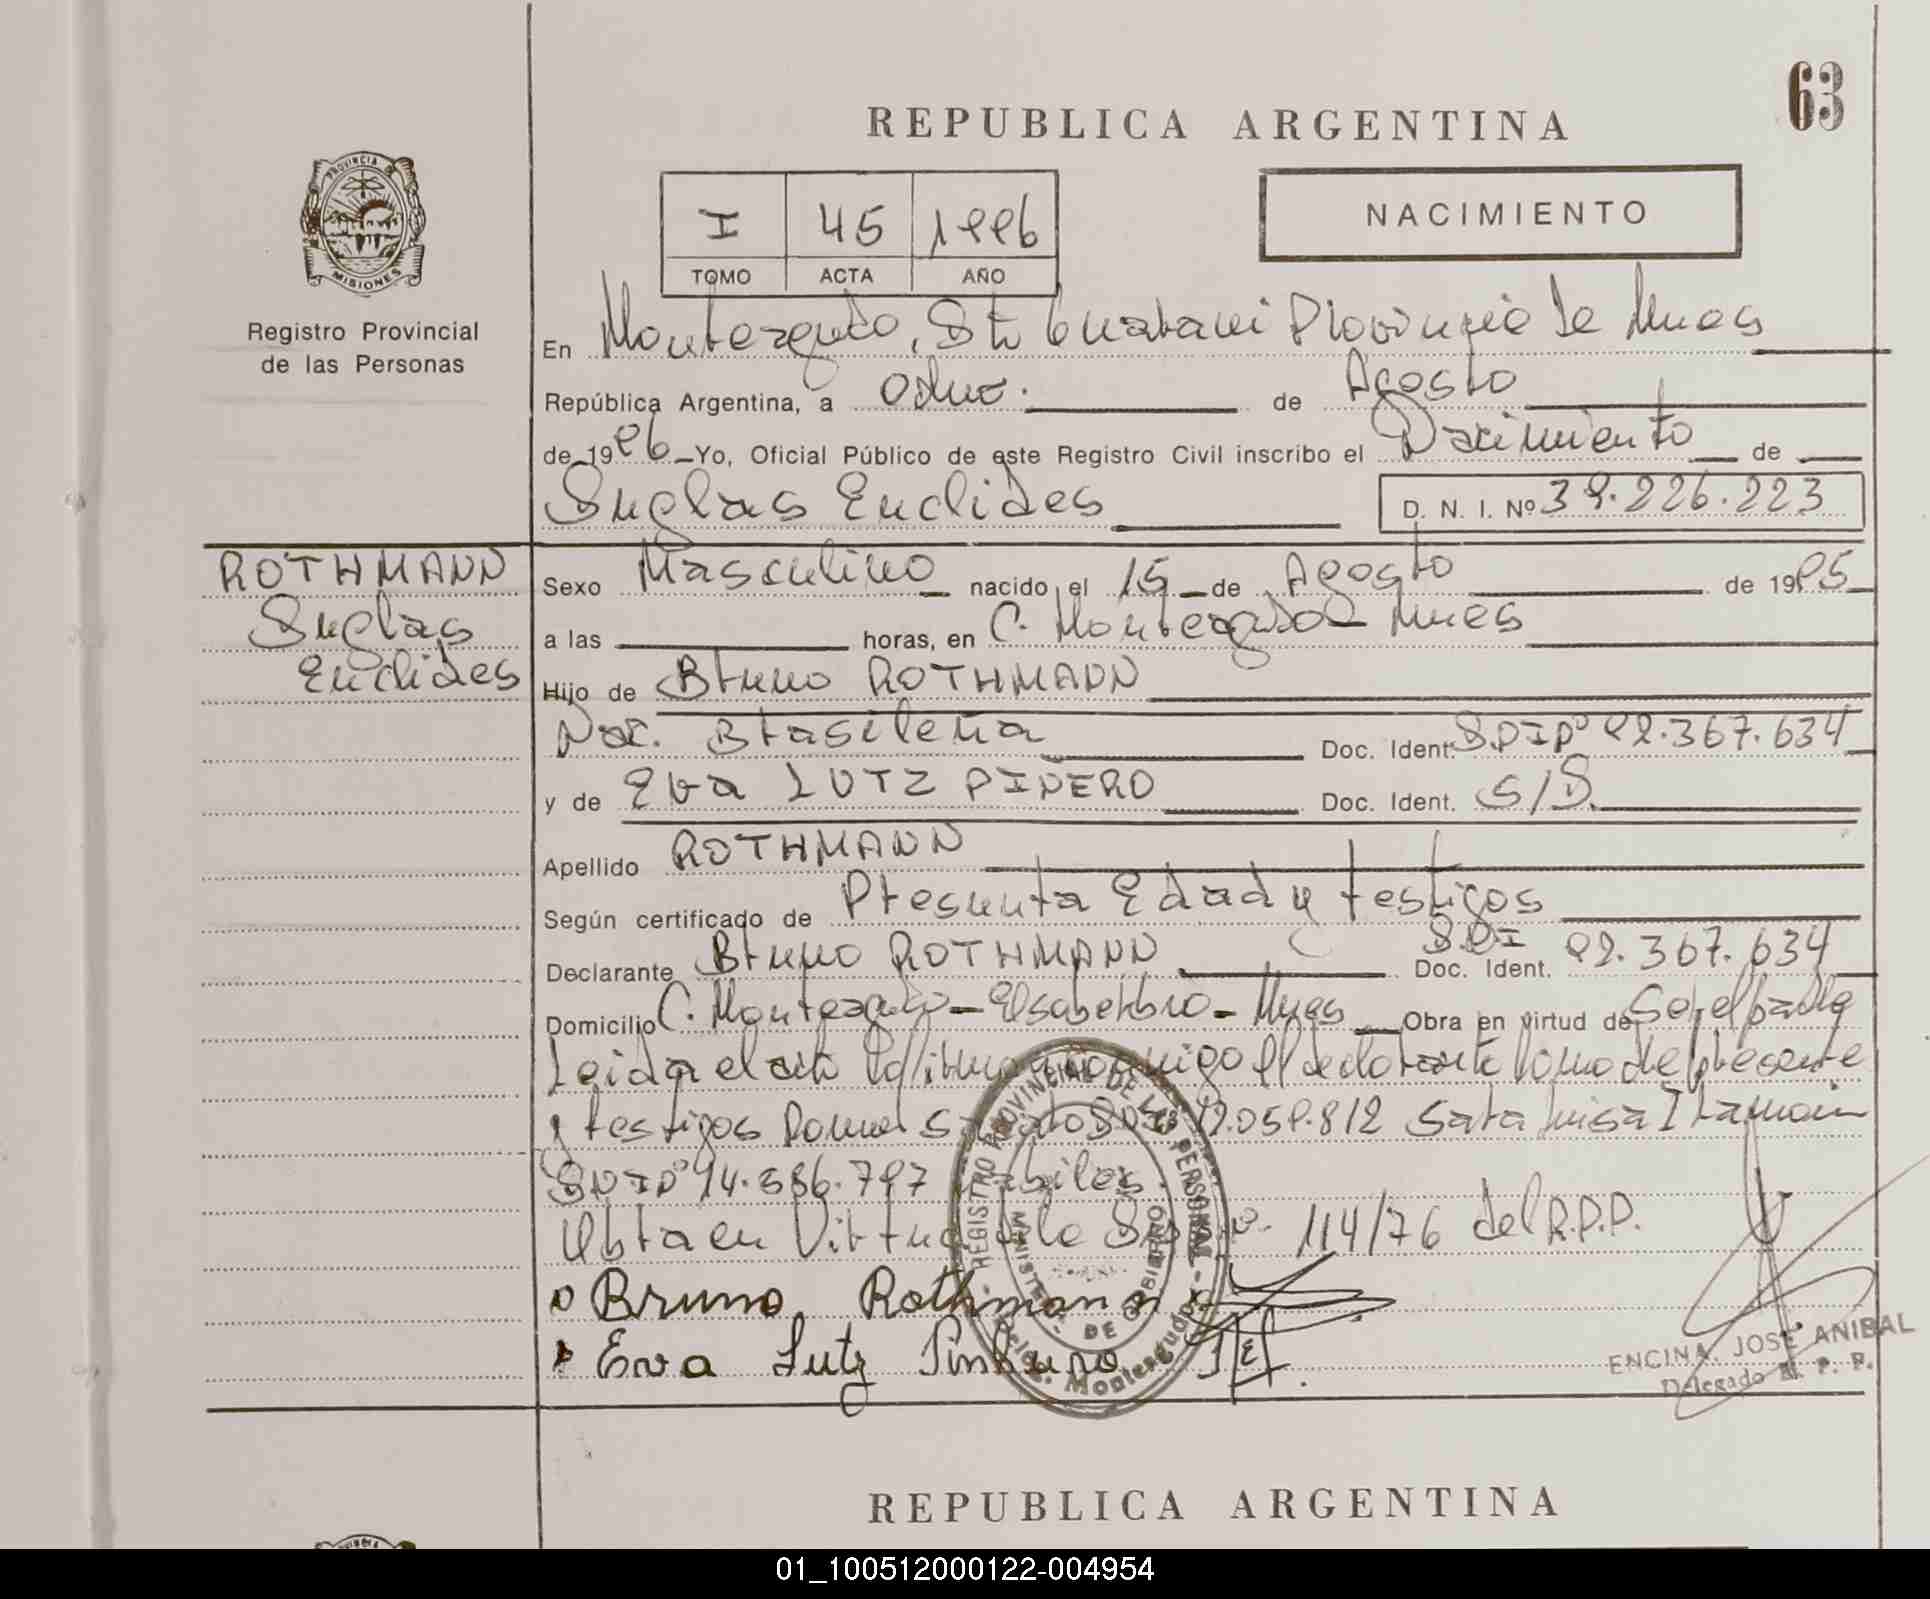 63
REPUBLICA ARGENTINA
PROVINCIA
MISIONES
Registro Provincial
de las Personas
I 45 1996
TOMO ACTA AÑO
NACIMIENTO
En Monteagudo, Provincia de Mnes
República Argentina, a ocho de Agosto
de 1996 Yo, Oficial Público de este Registro Civil inscribo el Nacimiento de
Euclides D. N. I. Nº 39.226.223
ROTHMANN
Euclides
Sexo Masculino nacido el 15 de Agosto de 1995
a las horas, en C. Monteagudo Mnes
Hijo de Bruno ROTHMANN
Nac. Brasileña Doc. Ident. 92.367.634
y de Eva LUTZ PIÑERO Doc. Ident. S/D.
Apellido ROTHMANN
Según certificado de Presunta Edad y testigos
Declarante Bruno ROTHMANN Doc. Ident. DNI 92.367.634
Domicilio C. Monteagudo - Mnes Obra en virtud de Ser el padre
Leida el acta conmigo el declarante como de presente
y testigos Sara Luisa
hábiles.
Obra en Virtud de 114/76 del R.P.P.
Bruno Rothmann
Eva Lutz
REGISTRO PROVINCIAL DE LAS PERSONAS
MINISTERIO DE GOBIERNO
Deleg. Monteagudo
ENCINA, JOSE ANIBAL
Delegado R. P. P.
REPUBLICA ARGENTINA
01_100512000122-004954